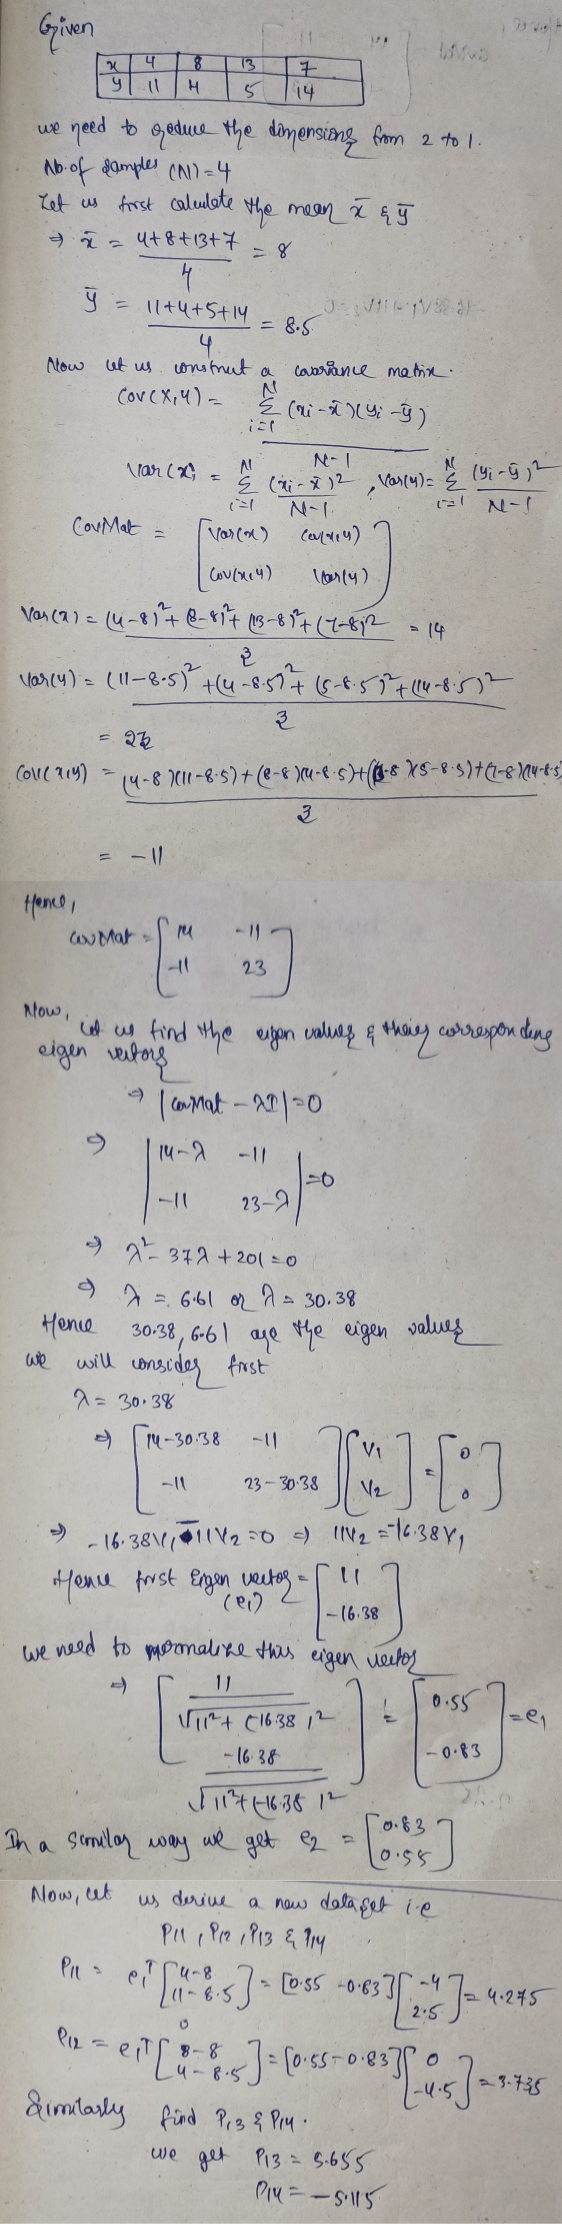 Given
x 4 8 13 7
y 11 4 5 14
we need to reduce the dimensions from 2 to 1.
No. of samples (N) = 4
Let us first calculate the mean x̄ & ȳ
⇒ x̄ = (4+8+13+7)/4 = 8
ȳ = (11+4+5+14)/4 = 8.5
Now let us construct a covariance matrix.
Cov(x,y) = Σ_{i=1}^{N} (xi - x̄)(yi - ȳ) / N-1
Var(x) = Σ_{i=1}^{N} (xi - x̄)²/N-1 , Var(y) = Σ_{i=1}^{N} (yi - ȳ)²/N-1
CovMat = [Var(x) cov(x,y)
Cov(x,y) Var(y)]
Var(x) = ((4-8)² + (8-8)² + (13-8)² + (7-8)²)/3 = 14
Var(y) = ((11-8.5)² + (4-8.5)² + (5-8.5)² + (14-8.5)²)/3
= 23
Cov(x,y) = ((4-8)(11-8.5)+(8-8)(4-8.5)+(13-8)(5-8.5)+(7-8)(14-8.5))/3
= -11
Hence,
CovMat = [14 -11
-11 23]
Now, let us find the eigen values & their corresponding
eigen vectors
⇒ |covMat - λI| = 0
⇒ |14-λ -11
-11 23-λ| = 0
⇒ λ² - 37λ + 201 = 0
⇒ λ = 6.61 or λ = 30.38
Hence 30.38, 6.61 are the eigen values
we will consider first
λ = 30.38
⇒ [14-30.38 -11
-11 23-30.38] [V1
V2] = [0
0]
⇒ -16.38V1 - 11V2 = 0 ⇒ 11V2 = -16.38V1
Hence first Eigen vector (e1) = [11
-16.38]
we need to normalize this eigen vector
⇒ [11/√(11² + (-16.38)²)
-16.38/√(11² + (-16.38)²)] = [0.55
-0.83] = e1
In a similar way we get e2 = [0.83
0.55]
Now, let us derive a new dataset i.e
P11, P12, P13 & P14
P11 = e1ᵀ [4-8
11-8.5] = [0.55 -0.83] [-4
2.5] = 4.275
P12 = e1ᵀ [8-8
4-8.5] = [0.55 -0.83] [0
-4.5] = 3.735
Similarly find P13 & P14.
we get P13 = 5.655
P14 = -5.115